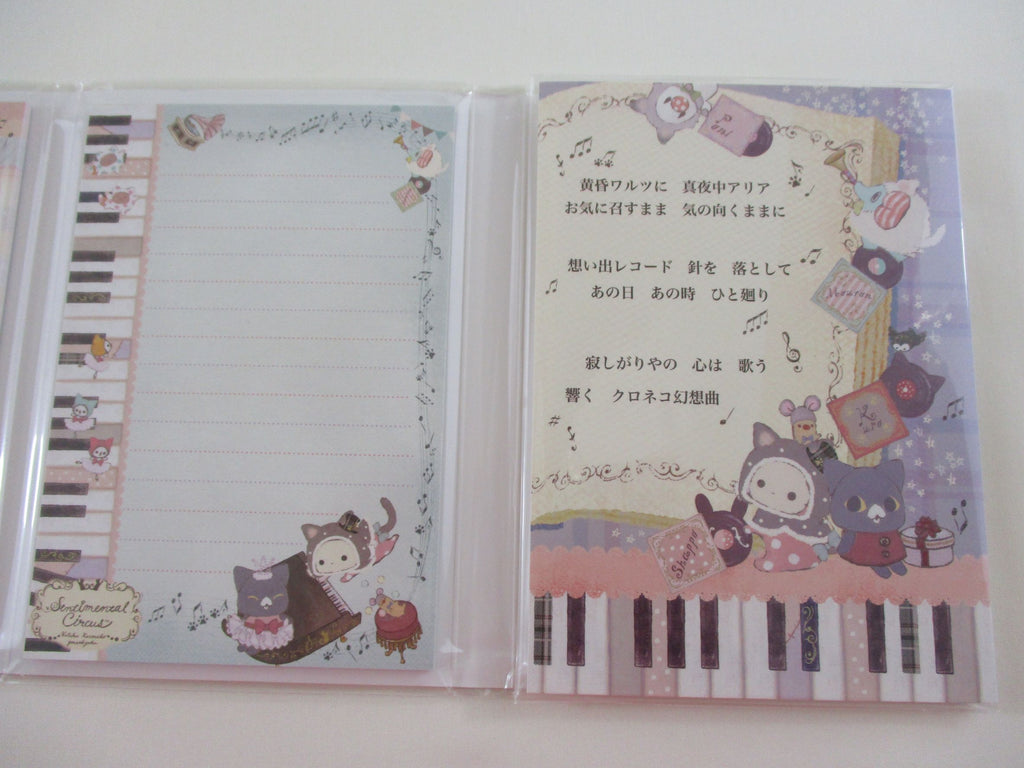 Sentimental
Circus
Pani
黄昏ワルツに　真夜中アリア
お気に召すまま　気の向くままに
想い出レコード　針を　落として
あの日　あの時　ひと廻り
Mouton
寂しがりやの　心は　歌う
響く　クロネコ幻想曲
Kuro
Shappo